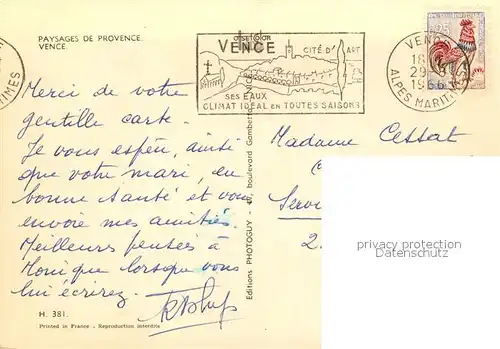 PAYSAGES DE PROVENCE
VENCE.
VENCE
CITÉ D'ART
SES EAUX
CLIMAT IDEAL EN TOUTES SAISONS
VENCE
18
29
196
ALPES MARITIMES
Merci de votre
gentille carte.
Je vous espère, ainsi
que votre mari, en
bonne santé et vous
envoie mes amitiés.
Meilleures pensées à
Monique lorsque vous
lui écrirez.
Madame Cessat
Servi
2.
Editions PHOTOGUY - boulevard Gambetta - NICE
H. 381.
Printed in France - Reproduction interdite
privacy protection
Datenschutz